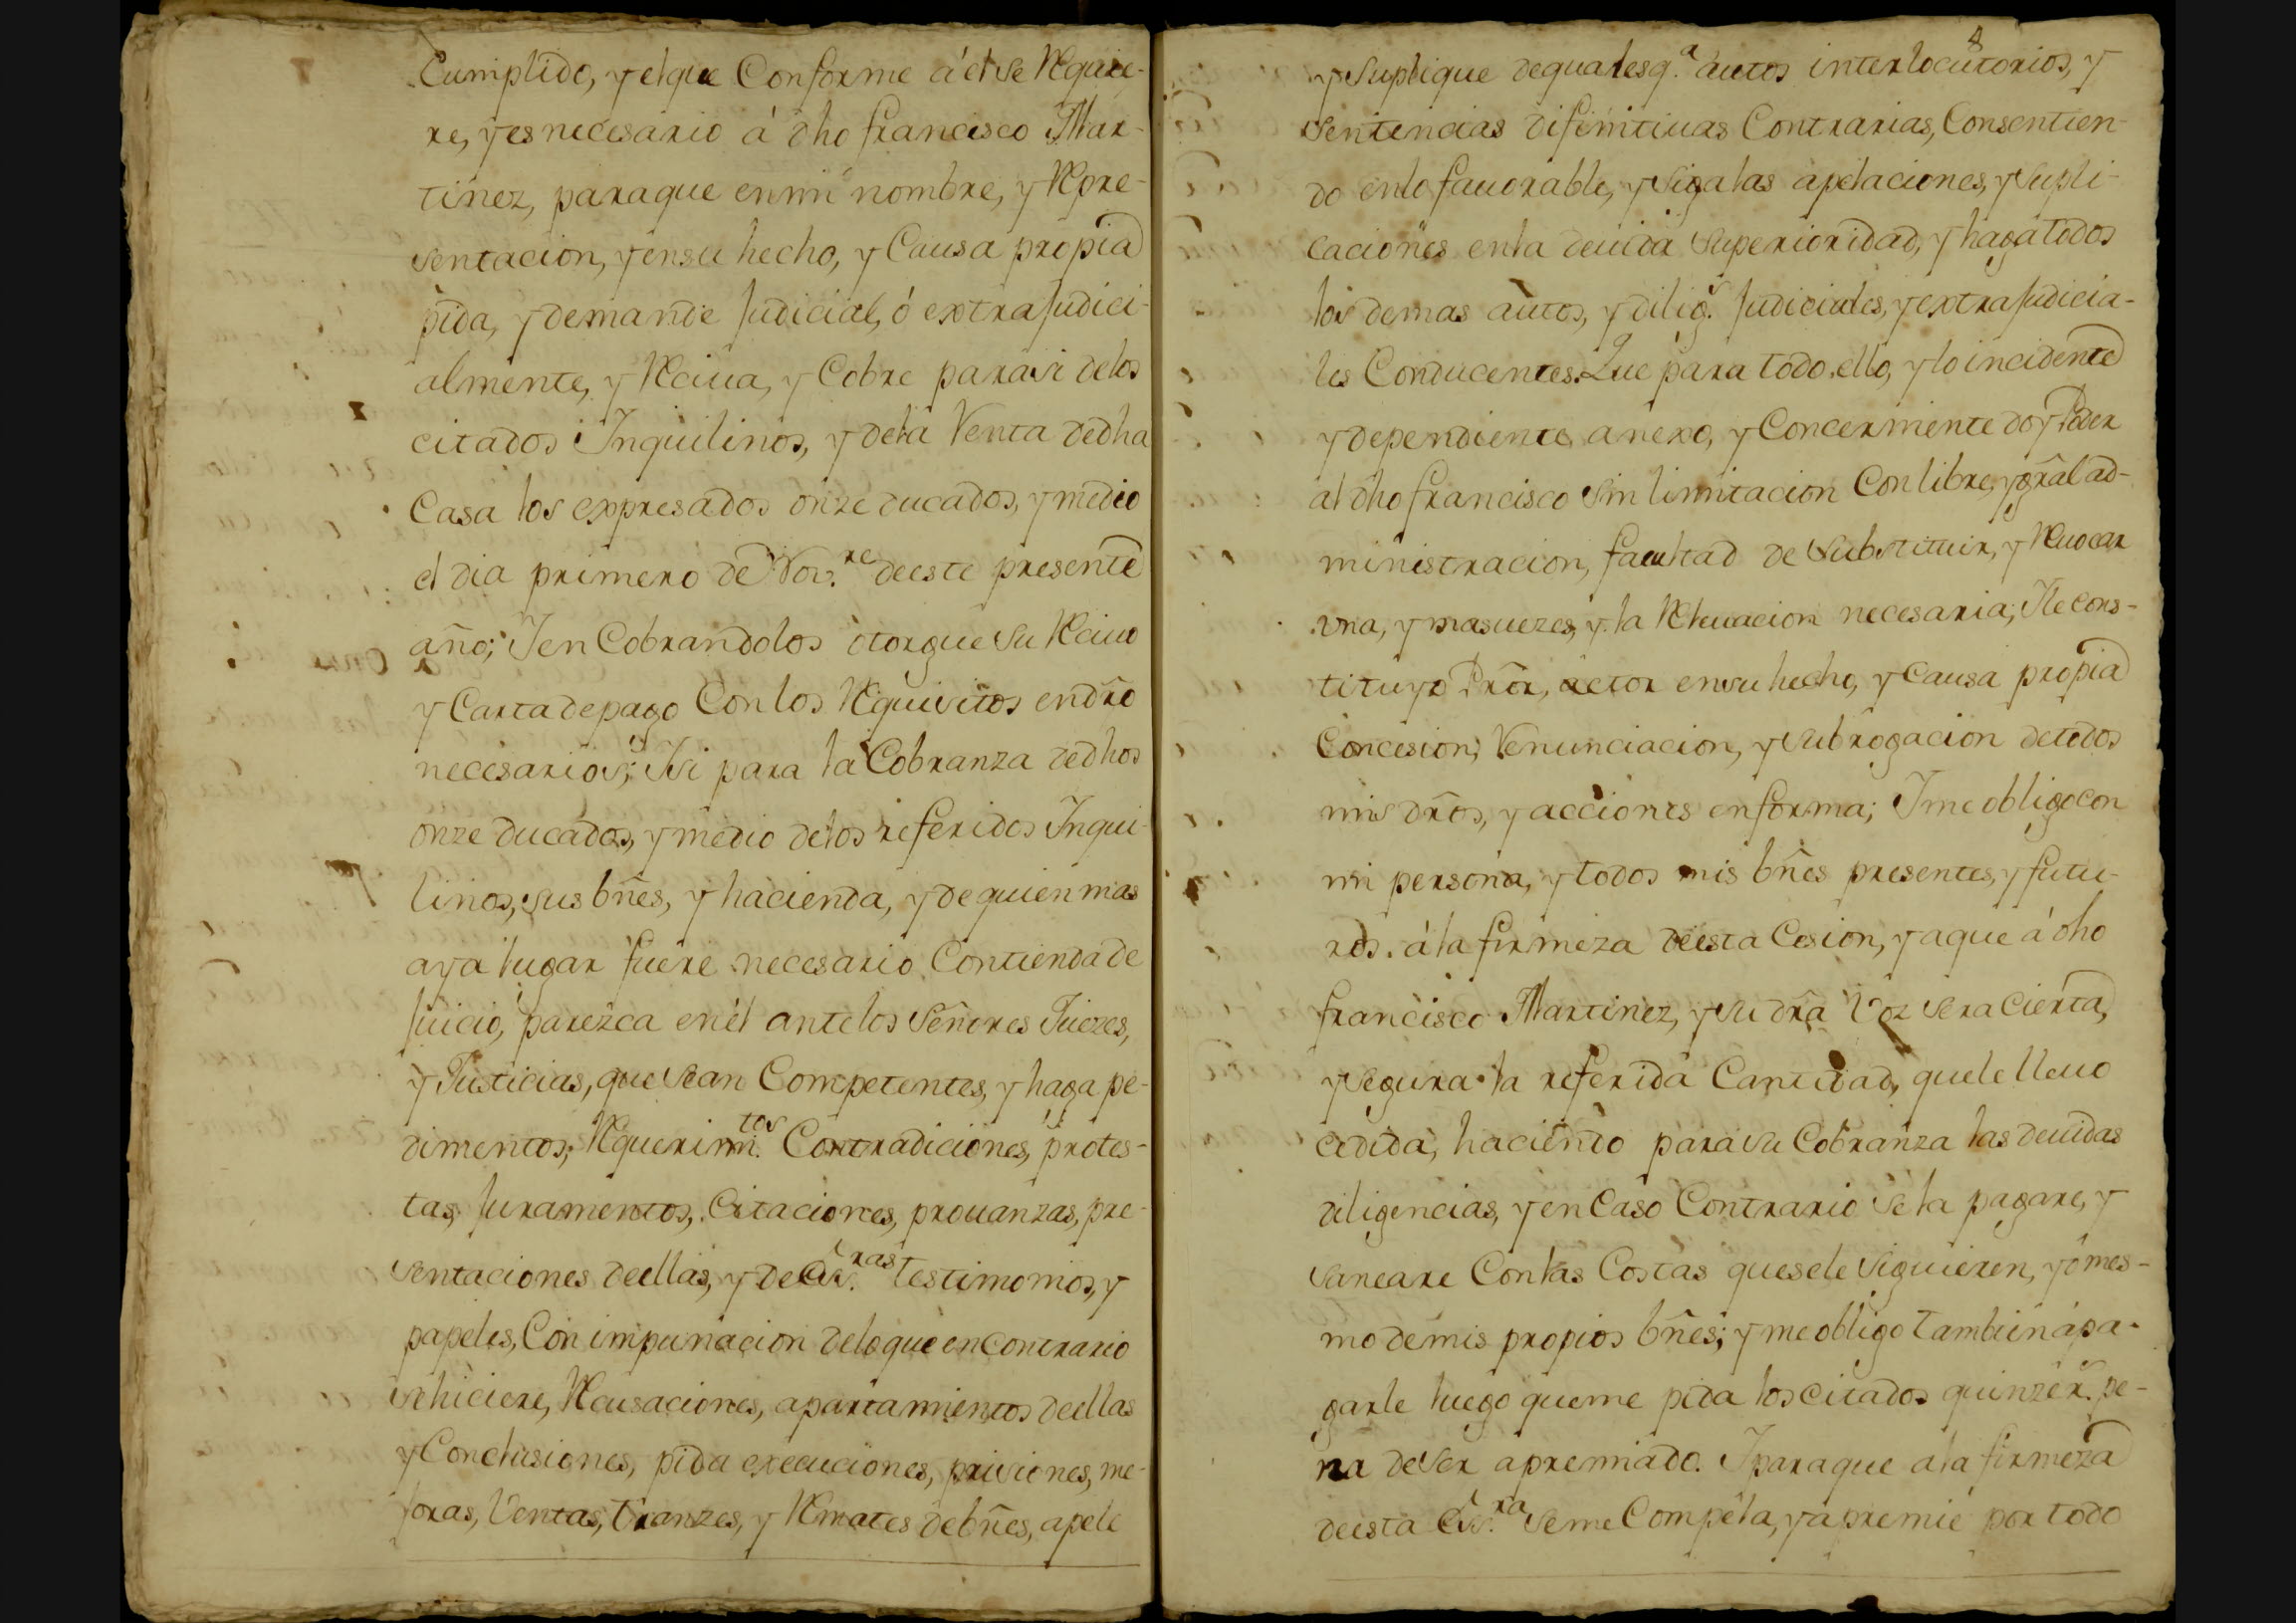 Cumplido, y el que Conforme á el se Requie-
re, y es necesario á dho francisco Mar-
tinez, paraque en mi nombre, y Repre-
sentacion, y en su hecho, y Causa propia
pida, y demande Judicial, ó extrajudici-
almente, y Reciua, y Cobre para si de los
citados Inquilinos, y de la Venta de dha
Casa los expresados onze ducados, y medio
el dia primero de Nov.re de este presente
año; Y en Cobrandolos otorgue su Reciuo
y Carta de pago Con los Requisitos en dro
necesarios; Y si para la Cobranza de dhos
onze ducados, y medio de los referidos Inqui-
linos, sus bñes, y hacienda, y de quien mas
aya lugar fuere necesario Contienda de
Juicio, parezca en él ante los Señores Juezes,
y Justicias, que sean Competentes, y haga pe-
dimentos, Requerim.tos Contradiciones, protes-
tas, Juramentos, Citaciones, prouanzas, pre-
sentaciones de ellas, y de Es.ras testimonios, y
papeles, Con impunacion de lo que en contrario
se hiciere, Recusaciones, apartamientos de ellas
y Conclusiones, pida execuciones, prisiones, me-
joras, Ventas, tranzes, y Remates de bñes, apele
y Suplique de qualesq.a autos interlocutorios, y
Sentencias difinitiuas Contrarias, Consentien-
do en lo fauorable, y siga las apelaciones, y supli-
caciones en la deuida Superioridad, y haga todos
los demas autos, y dilig.s Judiciales, y extrajudicia-
les Conducentes. Que para todo ello, y lo incidente
y dependiente anexo, y Concerniente doy Poder
al dho francisco sin limitacion Con libre, y gral ad-
ministracion, facultad de Substituir, y Reuocar
vna, y mas vezes, y la Releuacion necesaria; Y le cons-
tituyo Pror, actor en su hecho, y causa propia
Concesion, Renunciacion, y subrogacion de todos
mis dros, y acciones en forma; Y me obligo con
mi persona, y todos mis bñes presentes, y futu-
ros. á la firmeza de esta Cesion, y a que á dho
francisco Martinez, y su dra Voz sera Cierta,
y Segura la referida Cantidad, que le lleuo
cedida, haciendo para su Cobranza las deuidas
diligencias, y en Caso Contrario se la pagare, y
saneare Con las Costas que se le siguieren, yó mes-
mo de mis propios bñes; y me obligo tambien á pa-
garle luego que me pida los citados quinze r.s pe-
na de ser apremiado. Y para que a la firmeza
de esta Es.ra se me Compela, y apremie por todo